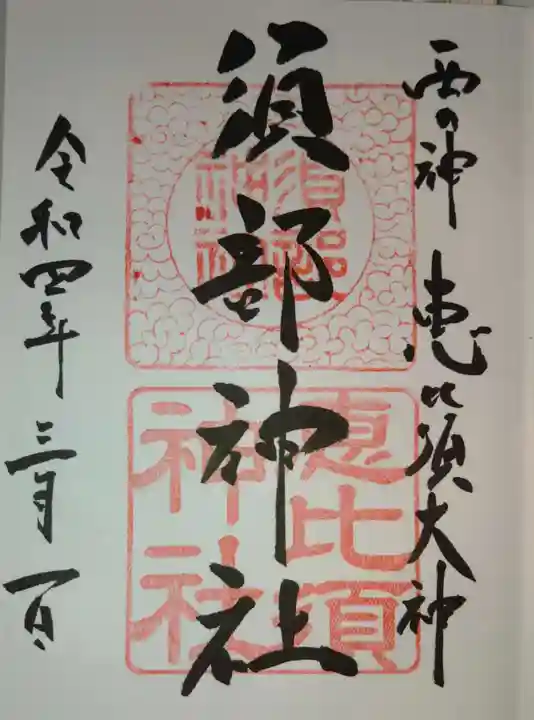 西の神 恵比須大神
須部神社
須部神社
恵比須神社
令和四年 三月 一日